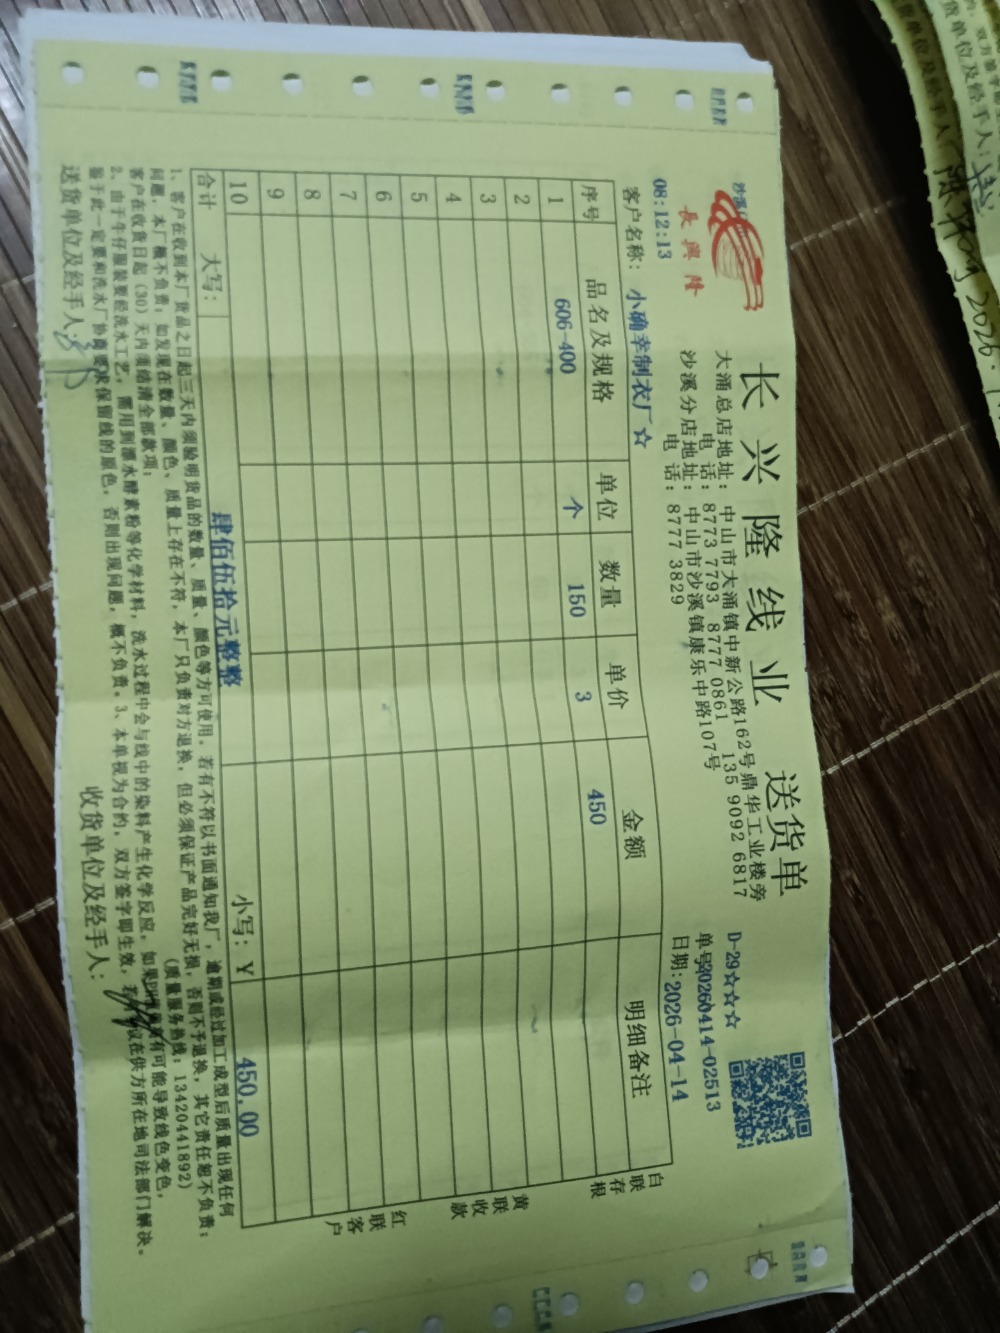 长兴隆线业 送货单
長興隆
大涌总店地址：中山市大涌镇中新公路162号鼎华工业楼旁
电话：8773 7793 8777 0861 135 9092 6817
沙溪分店地址：中山市沙溪镇康乐中路107号
电话：8777 3829
D-29☆☆☆
单号20260414-02513
日期：2026-04-14
08:12:13
客户名称：小确幸制衣厂☆
序号 品名及规格 单位 数量 单价 金额 明细备注
1 606-400 个 150 3 450
2
3
4
5
6
7
8
9
10
合计 大写：肆佰伍拾元整整 小写：￥450.00
白联存根
黄联收款
红联客户
1、客户在收到本厂货品之日起三天内须验明货品的数量、质量、颜色等方可使用，若有不符以书面通知我厂，逾期或经过加工成型后质量出现任何
问题，本厂概不负责，如发现在数量、颜色、质量上存在不符，本厂只负责对方退换，但必须保证产品完好无损，否则不予退换，其它责任恕不负责；
客户在收货日起（30）天内须结清全部款项； （质量服务热线：13420441892）
2、由于牛仔服装要经洗水工艺，需用到漂水酵素粉等化学材料，洗水过程中会与线中的染料产生化学反应，如果 有可能导致线色变色，
鉴于此一定要和洗水厂协商要求保留线的原色，否则出现问题，概不负责。3、本单视为合约，双方签字即生效，若 议在供方所在地司法部门解决。
送货单位及经手人：
收货单位及经手人：
货单位及经手人：
2026.